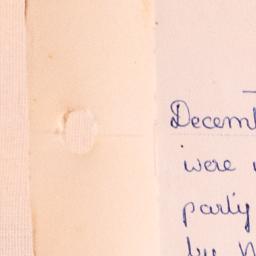 Decem
were
party
by